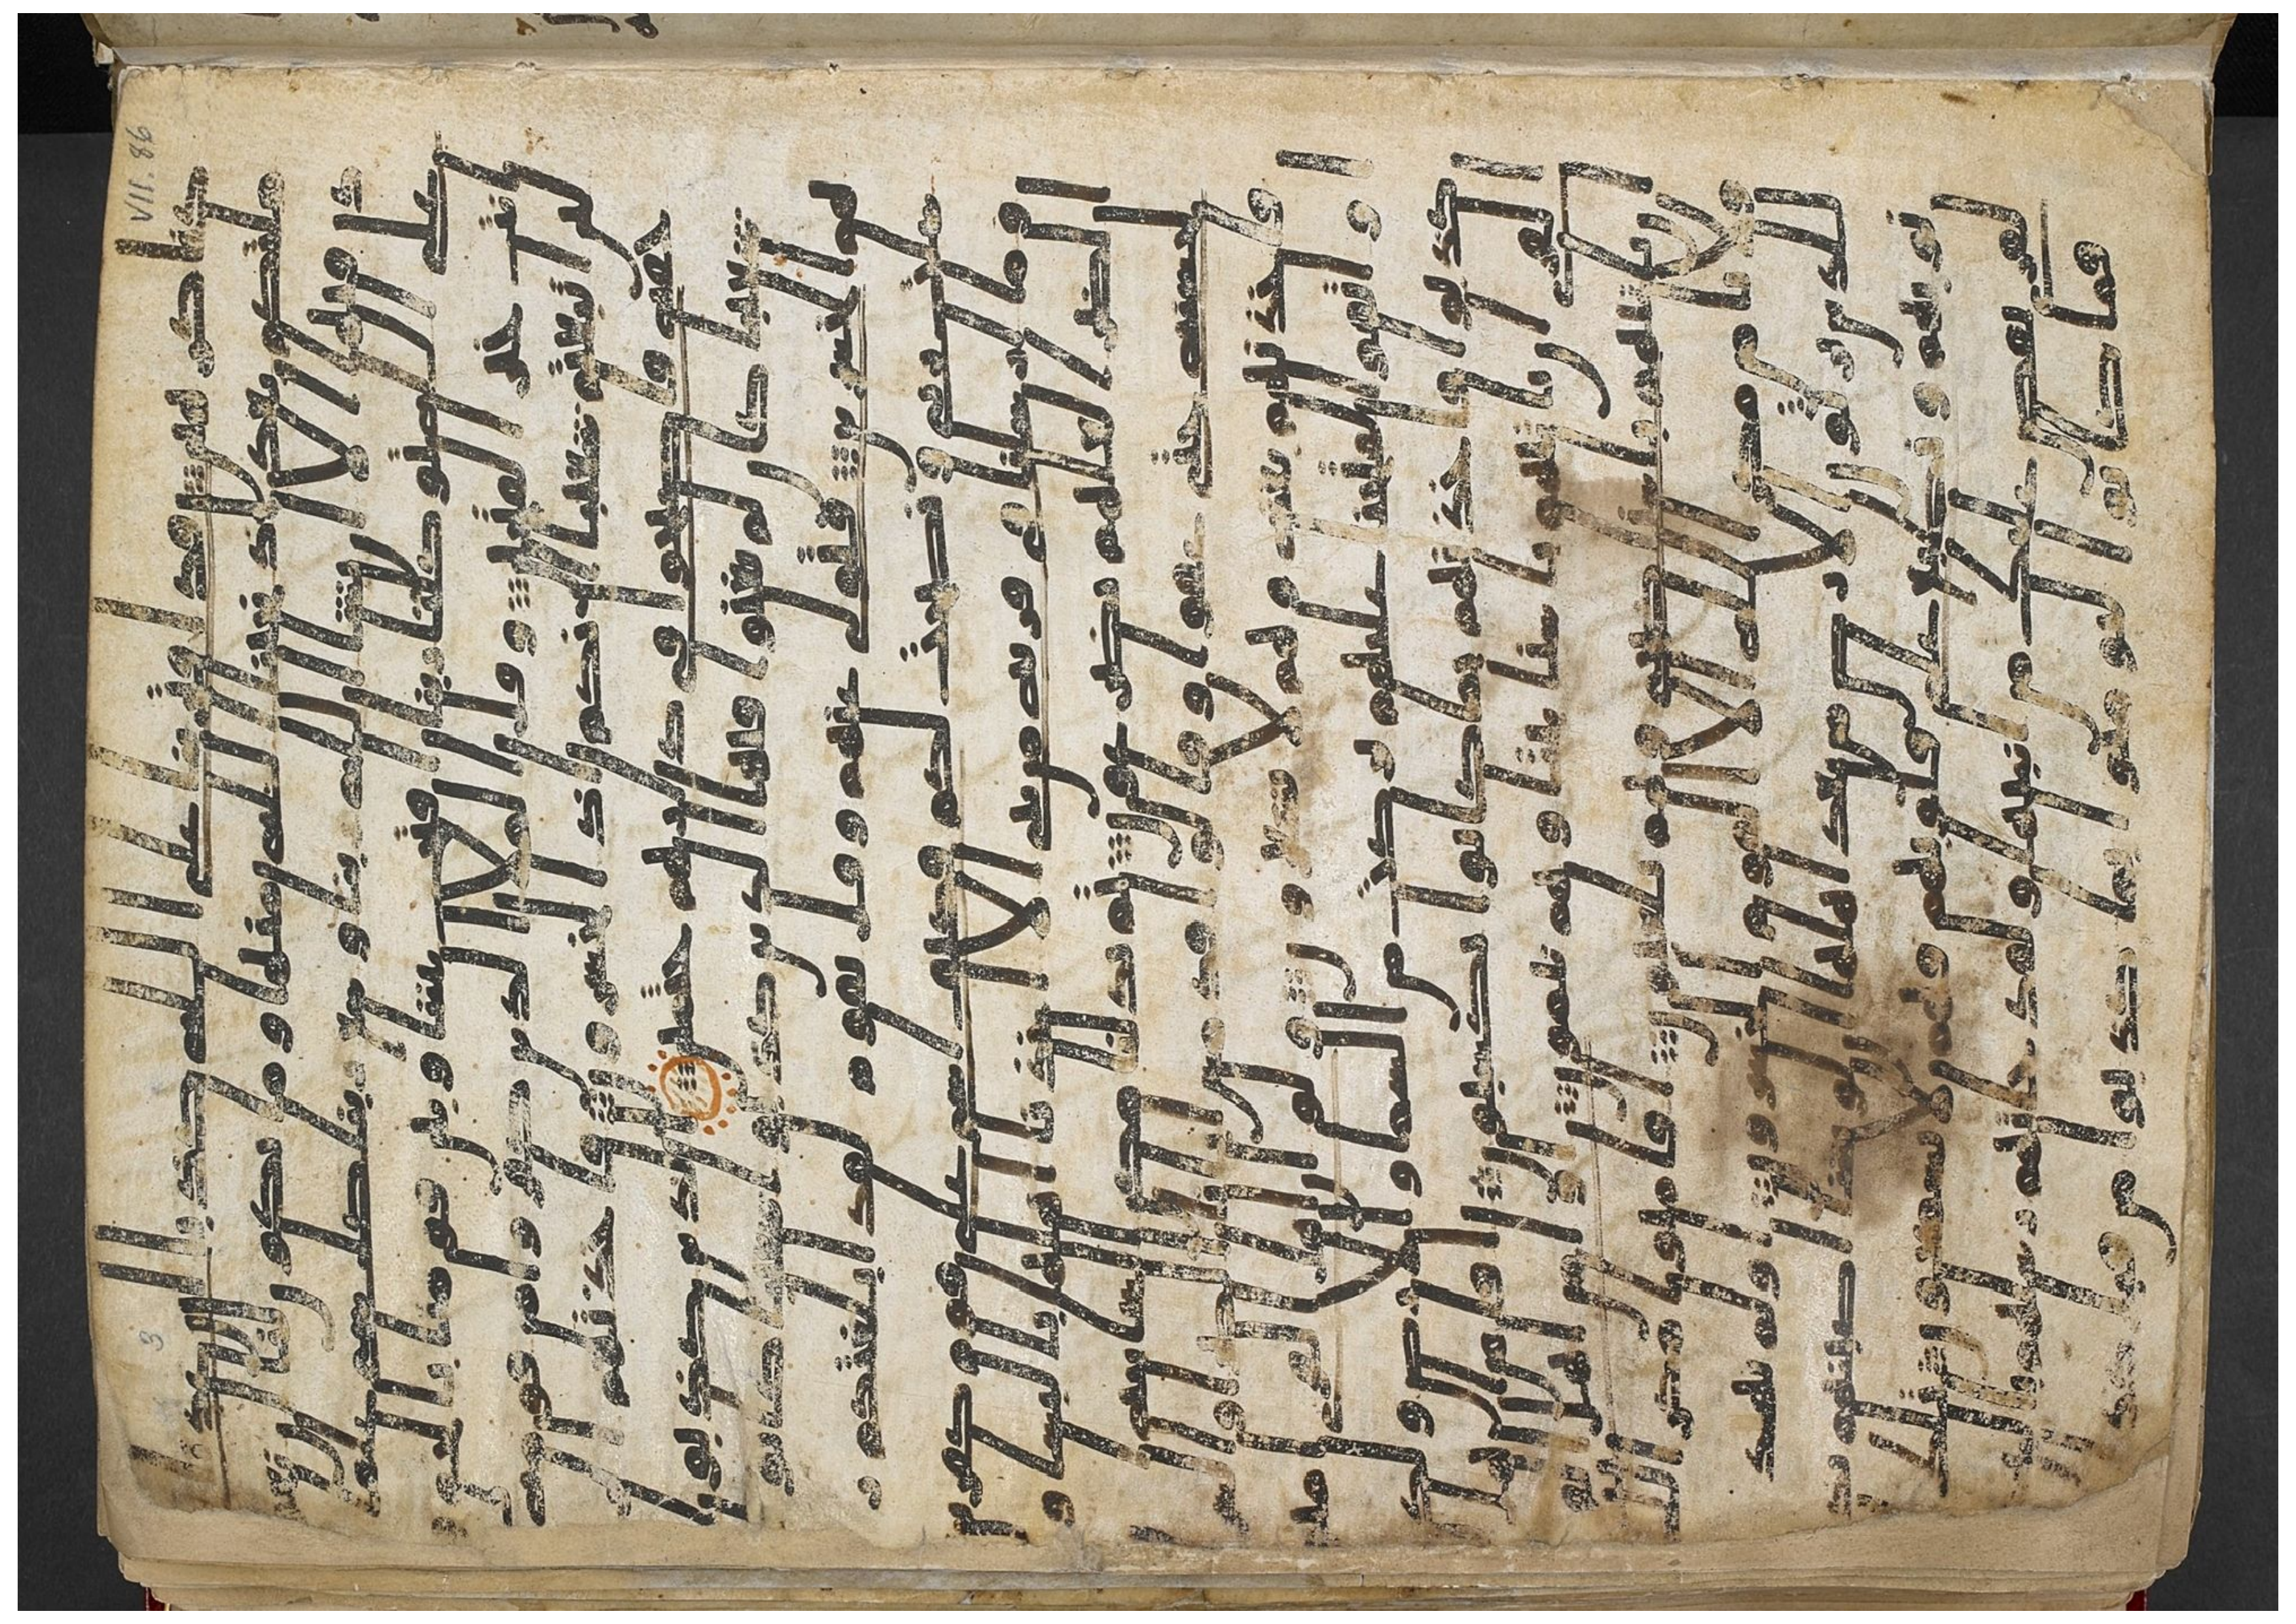 ملتنا قل اولو كنا كرهين قد افترينا على الله كذبا ان عدنا
في ملتكم بعد اذ نجينا الله منها وما يكون لنا ان نعود
فيها الا ان يشا الله ربنا وسع ربنا كل شي علما
على الله توكلنا ربنا افتح بيننا وبين قومنا بالحق و
انت خير الفتحين وقال الملا الذين كفروا من قومه
لين اتبعتم شعيبا انكم اذا لخسرون فاخذتهم الر
جفه فاصبحوا في دارهم جثمين الذين كذبوا
شعيبا كان لم يغنوا فيها الذين كذبوا شعيبا كانو
ا هم الخسرين فتولى عنهم وقل يقوم لقد ابلغتكم ر
سلت ربي ونصحت لكم فكيف اسى على قوم كفرين
وما ارسلنا في قريه من نبي الا اخذنا اهلها بالباسا و
الضرا لعلهم يضرعون ثم بدلنا مكان السييه
الحسنه حتى عفوا وقالوا قد مس ابانا الضرا والسرا
فاخذنهم بغته وهم لا يشعرون ولو ان اهل القرى ام
نوا واتقوا لفتحنا عليهم بركت من السما والارض ولكن
كذبوا فاخذنهم بما كانوا يكسبون افامن اهل ا
لقرى ان ياتيهم باسنا بيتا وهم نايمون او امن اهل القر
ى ان ياتيهم باسنا ضحى وهم يلعبون افامنوا مكر الله
فلا يامن مكر الله الا القوم الخسرون اولم يهد
للذين يرثون الارض من بعد اهلها ان لو نشا اصبنهم بذ
نوبهم ونطبع على قلوبهم فهم لا يسمعون تلك
القرى نقص عليك من انبايها ولقد جاتهم رسلهم بالبينت
فما كانوا ليومنوا بما كذبوا من قبل كذلك
VII. 86
3